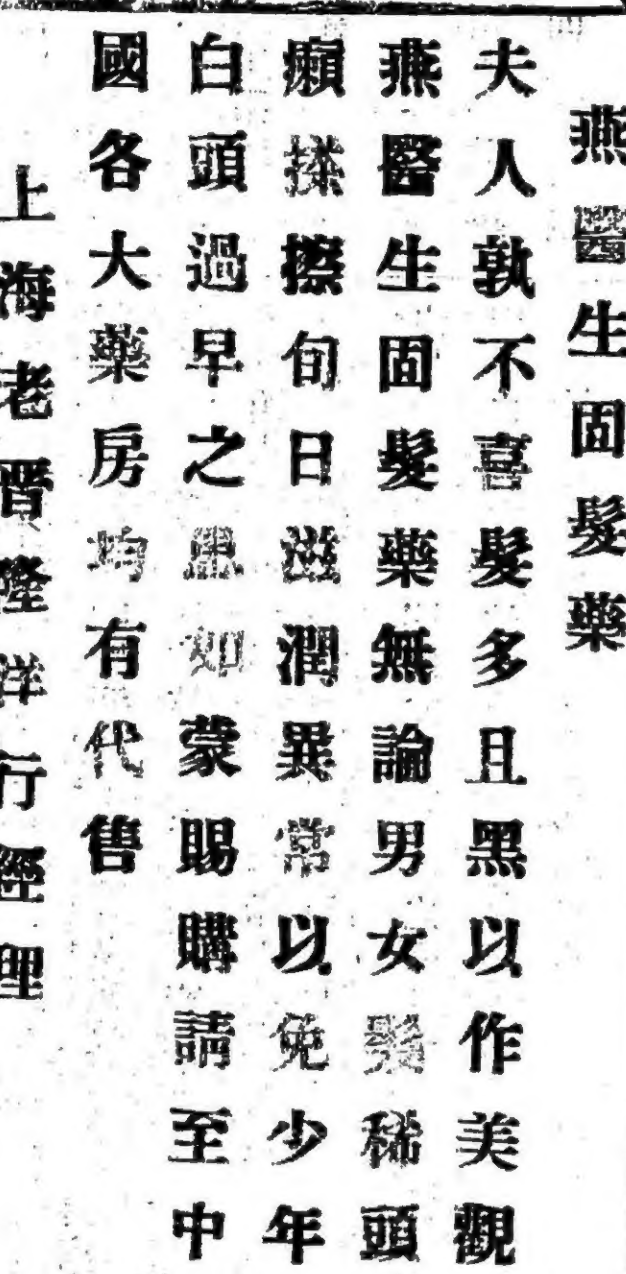 燕醫生固髮藥
夫人孰不喜髮多且黑以作美觀
燕醫生固髮藥無論男女髮稀頭
癩搽擦旬日滋潤異常以免少年
白頭過早之如蒙賜購請至中
國各大藥房均有代售
上海老晉隆洋行經理